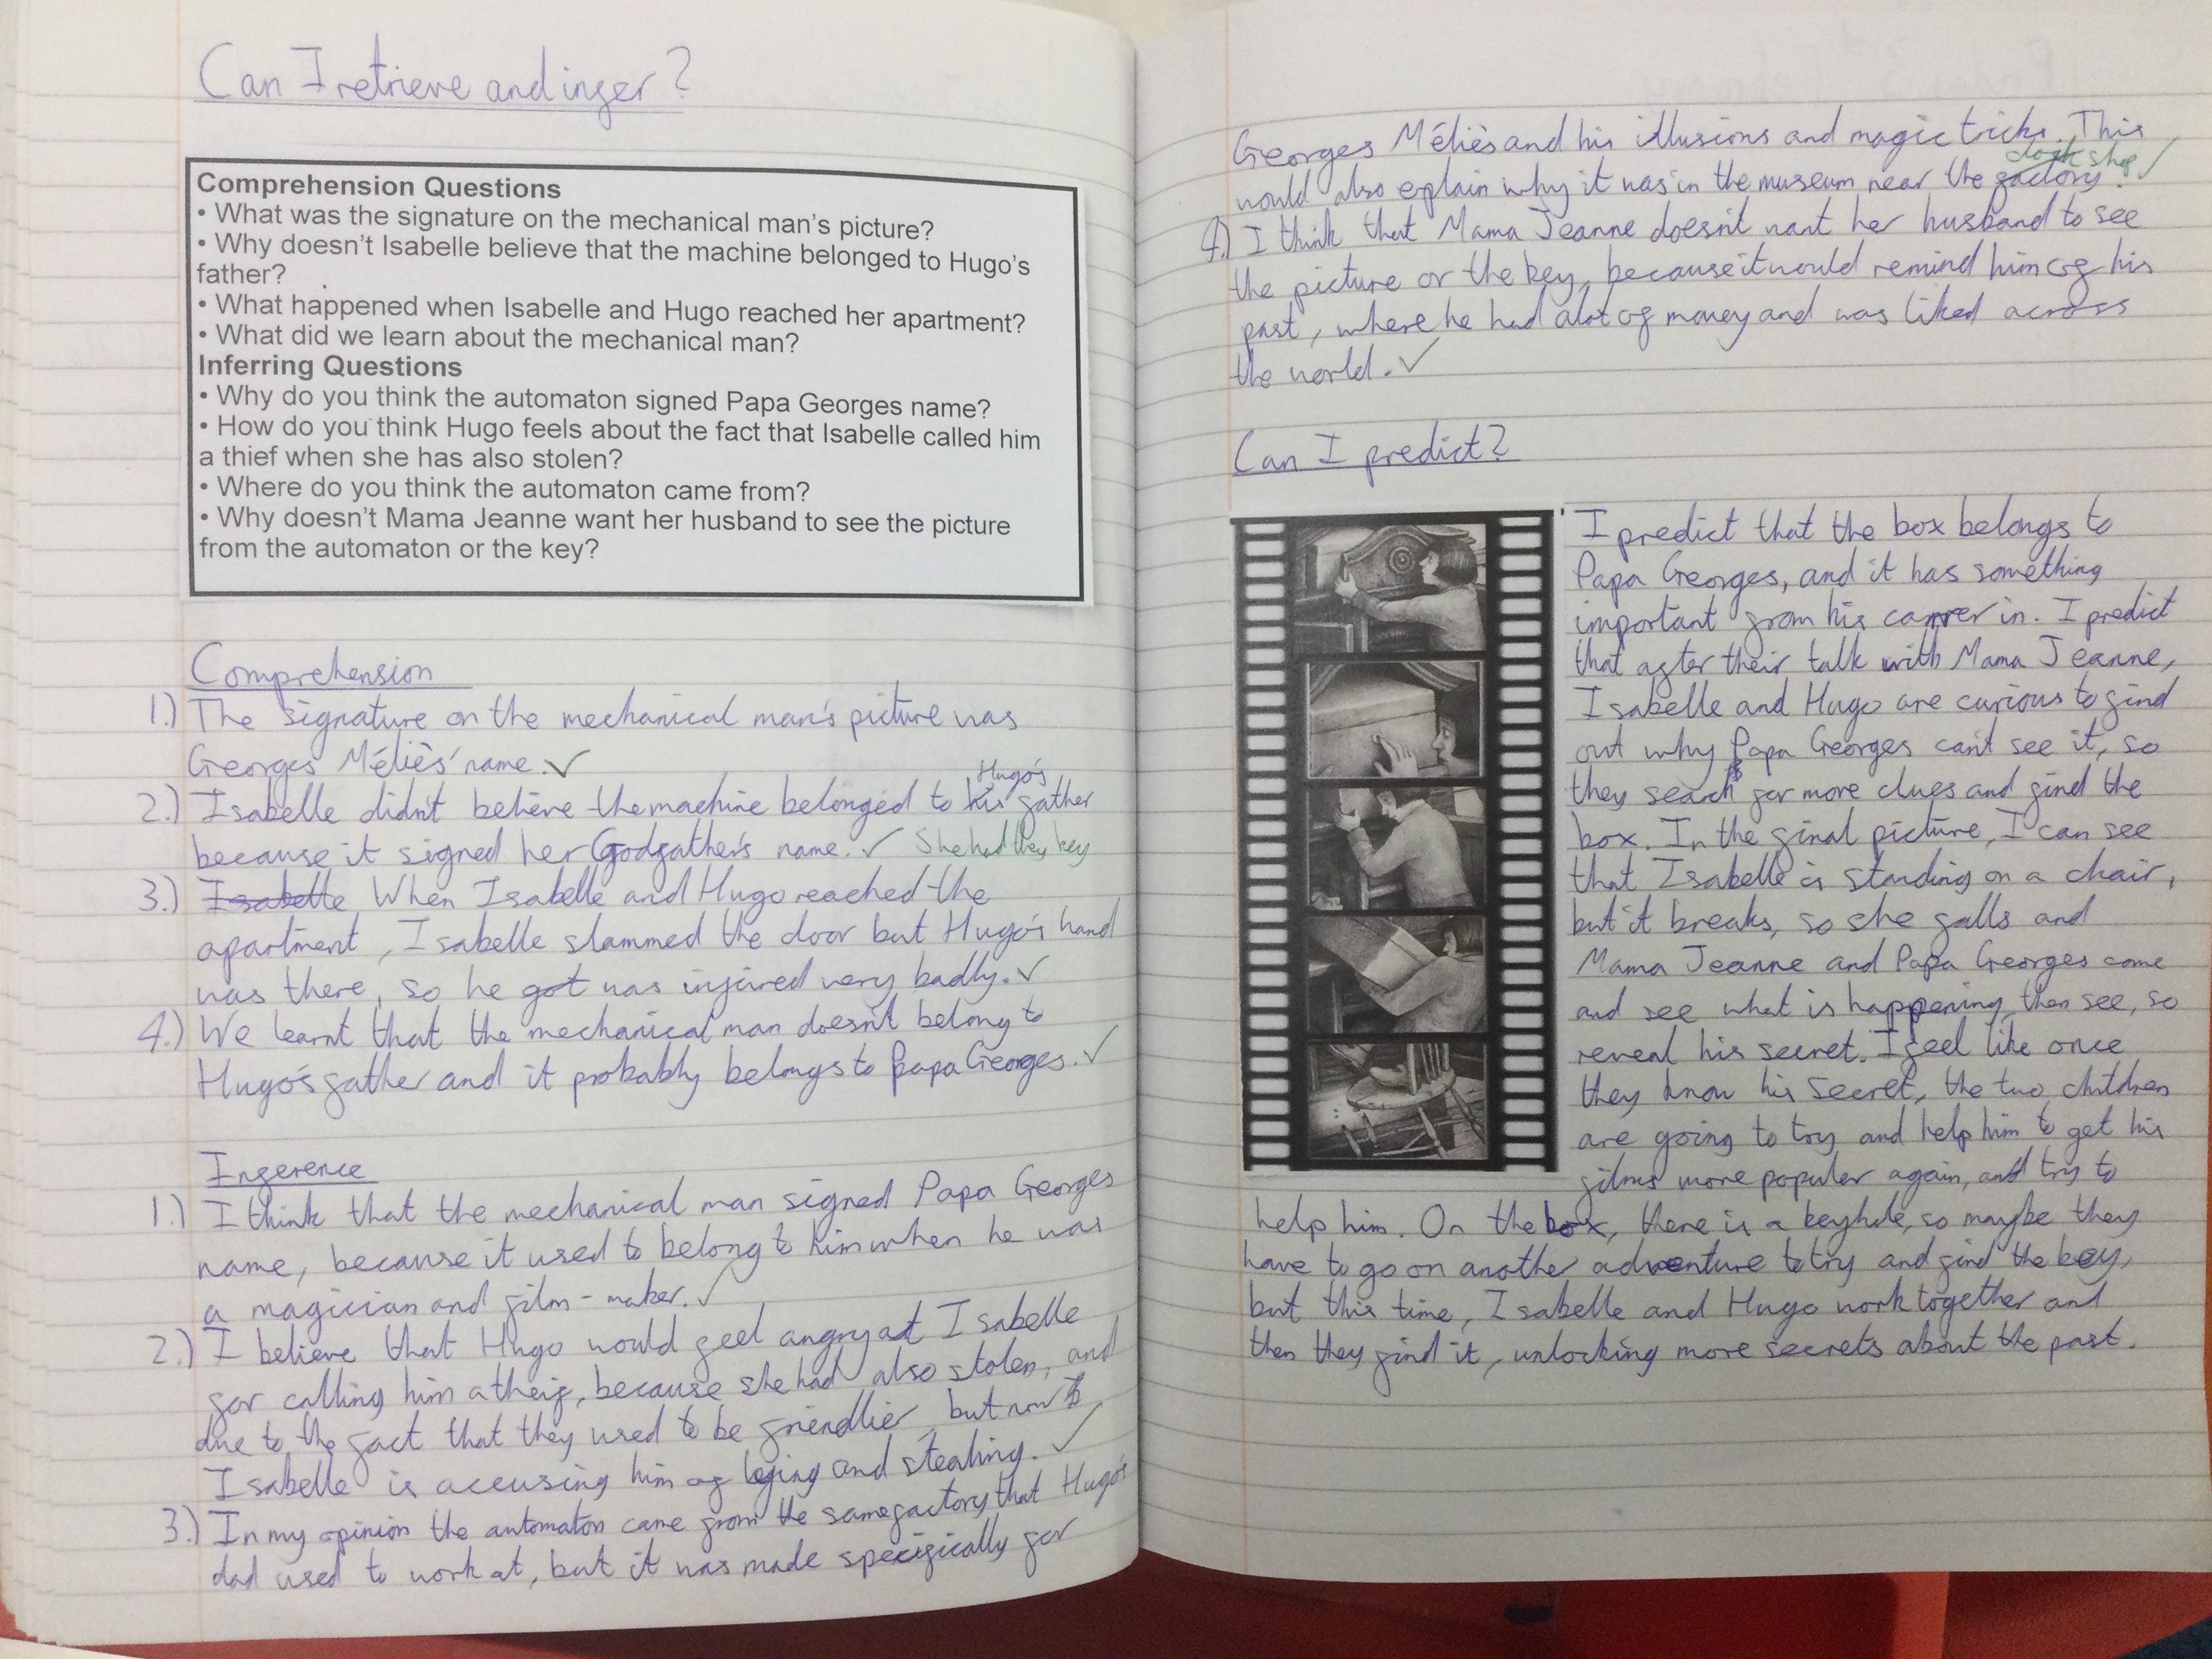 Can I retrieve and infer?
Comprehension Questions
• What was the signature on the mechanical man's picture?
• Why doesn't Isabelle believe that the machine belonged to Hugo's
father?
• What happened when Isabelle and Hugo reached her apartment?
• What did we learn about the mechanical man?
Inferring Questions
• Why do you think the automaton signed Papa Georges name?
• How do you think Hugo feels about the fact that Isabelle called him
a thief when she has also stolen?
• Where do you think the automaton came from?
• Why doesn't Mama Jeanne want her husband to see the picture
from the automaton or the key?
Comprehension
1.) The signature on the mechanical man's picture was
Georges Méliès' name. ✓
Hugo's
2.) Isabelle didn't believe the machine belonged to his father
because it signed her Godfather's name. ✓ She had they key
3.) Isabelle When Isabelle and Hugo reached the
apartment, Isabelle slammed the door but Hugo's hand
was there, so he got was injured very badly. ✓
4.) We learnt that the mechanical man doesn't belong to
Hugo's father and it probably belongs to Papa Georges. ✓
Inference
1.) I think that the mechanical man signed Papa Georges
name, because it used to belong to him when he was
a magician and film-maker. ✓
2.) I believe that Hugo would feel angry at Isabelle
for calling him a theif, because she had also stolen, and
due to the fact that they used to be friendlier, but now
Isabelle is accusing him of lying and stealing. ✓
3.) In my opinion the automaton came from the same factory that Hugo's
dad used to work at, but it was made specifically for
Georges Méliès and his illusions and magic tricks. This
clock shop ✓
would also explain why it was in the museum near the factory.
4.) I think that Mama Jeanne doesn't want her husband to see
the picture or the key, because it would remind him of his
past, where he had alot of money and was liked across
the world. ✓
Can I predict?
I predict that the box belongs to
Papa Georges, and it has something
important from his career in. I predict
that after their talk with Mama Jeanne,
Isabelle and Hugo are curious to find
out why Papa Georges can't see it, so
they search for more clues and find the
box. In the final picture, I can see
that Isabelle is standing on a chair,
but it breaks, so she falls and
Mama Jeanne and Papa Georges come
and see what is happening, then see, so
reveal his secret. I feel like once
they know his secret, the two children
are going to try and help him to get his
films more populer again, and try to
help him. On the box, there is a keyhole, so maybe they
have to go on another adventure to try and find the key,
but this time, Isabelle and Hugo work together and
then they find it, unlocking more secrets about the past.